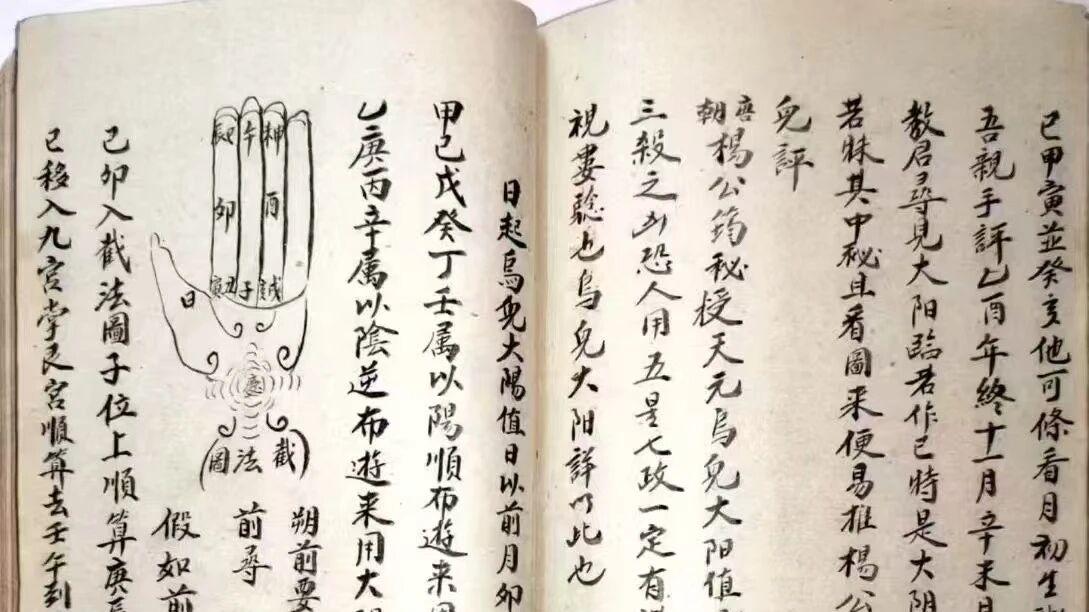 已甲寅並癸亥他可條看月初生
吾親手評乙酉年終十一月辛未月
教君尋見大阳臨君作已時是大阴
若昧其中秘且看圖來便易推楊公
兔評
唐朝楊公筠秘授天元烏兔大阳值
三殺之凶恐人用五星七政一定有
視婁驗也烏兔大阳詳以此也
日起烏兔大陽值日以前月卯
甲己戊癸丁壬属以陽順布遊来用
乙庚丙辛属以陰逆布遊来用大陽
朔前要
前尋
假如前
辰 午 神
卯 酉
寅 丑 子 誠
日
截法圖
己卯入截法圖子位上順算庚辰
已移入九宮掌艮宮順算去壬午到